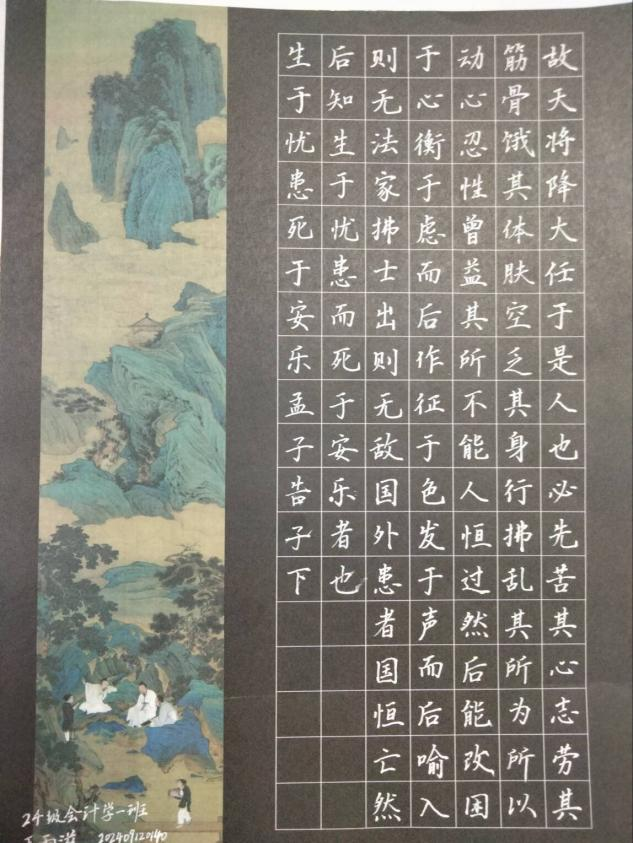 故天将降大任于是人也必先苦其心志劳其
筋骨饿其体肤空乏其身行拂乱其所为所以
动心忍性曾益其所不能人恒过然后能改困
于心衡于虑而后作征于色发于声而后喻入
则无法家拂士出则无敌国外患者国恒亡然
后知生于忧患而死于安乐者也
生于忧患死于安乐孟子告子下
24级会计学一班
202409120140